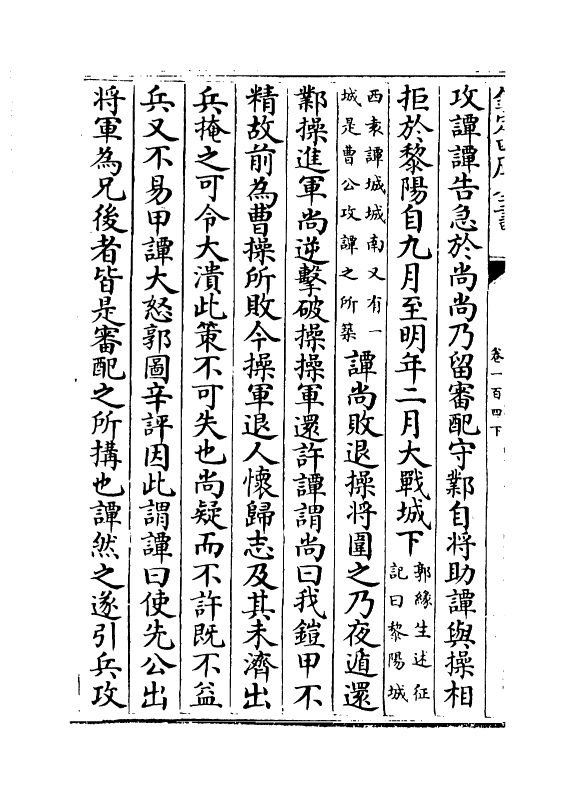 卷一百四下
攻譚譚告急於尚尚乃留審配守鄴自將助譚與操相
拒於黎陽自九月至明年二月大戰城下郭緣生述征
記曰黎陽城
西袁譚城城南又有一
城是曹公攻譚之所築譚尚敗退操將圍之乃夜遁還
鄴操進軍尚逆擊破操操軍還許譚謂尚曰我鎧甲不
精故前為曹操所敗今操軍退人懷歸志及其未濟出
兵掩之可令大潰此策不可失也尚疑而不許既不益
兵又不易甲譚大怒郭圖辛評因此謂譚曰使先公出
將軍為兄後者皆是審配之所搆也譚然之遂引兵攻